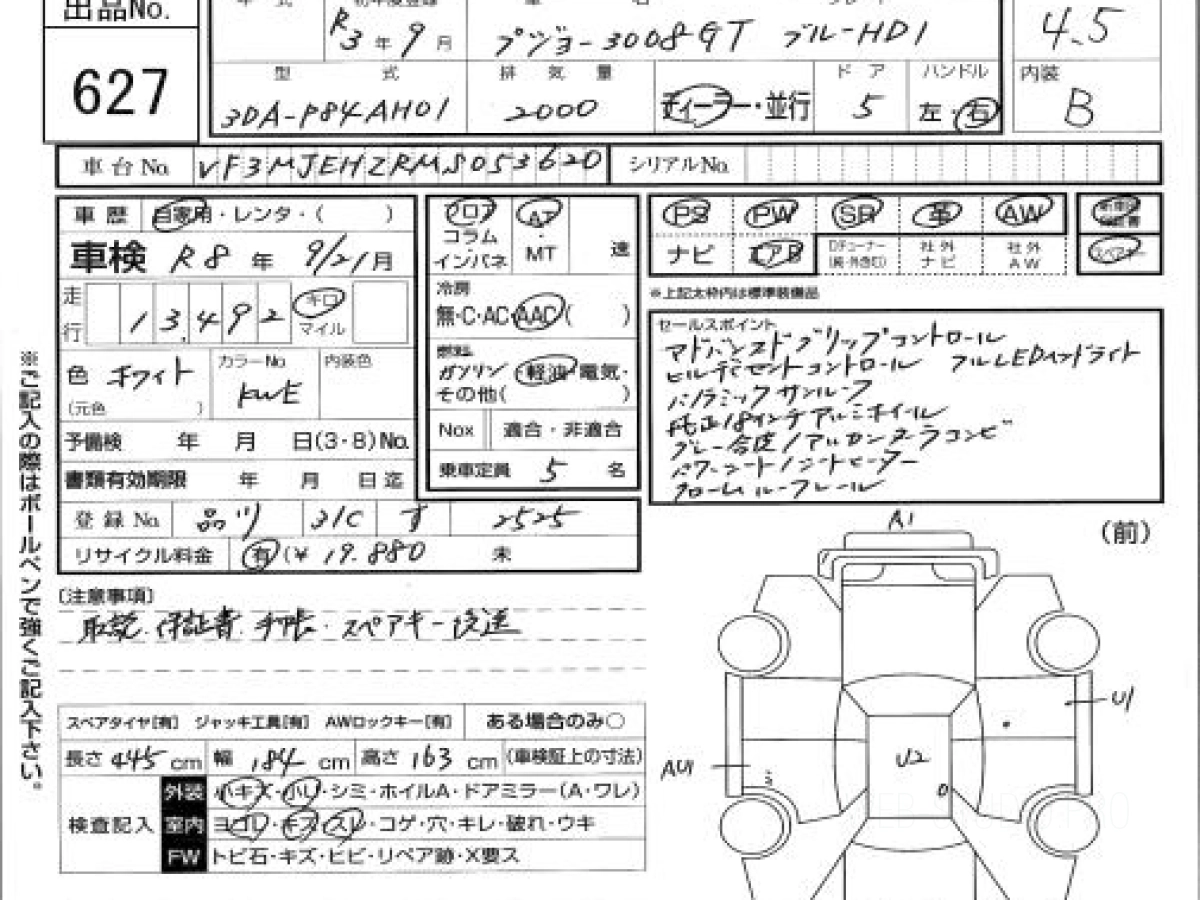 出品No.
627
R3年9月
プジョー3008GT ブルーHDI
4.5
型式
3DA-P84AH01
排気量
2000
ディーラー・並行
ドア
5
ハンドル
左・右
内装
B
車台No.
VF3MJEHZRMS053620
シリアルNo.
車歴 自家用・レンタ・( )
車検 R8年 9/21月
走行 13,492 キロ マイル
色 ホワイト
(元色 )
カラーNo
KWE
内装色
予備検 年 月 日(3・8)No.
書類有効期限 年 月 日迄
登録No. 品川 31C す 2525
リサイクル料金 有(¥ 19.880 未
フロア
コラム
インパネ
AT
・
MT
速
冷房
無・C・AC・AAC( )
燃料
ガソリン・軽油・電気・
その他( )
Nox 適合・非適合
乗車定員 5 名
PS PW SR 革 AW
ナビ エアB 社外ナビ 社外AW
スペアキー
※上記太枠内は標準装備品
セールスポイント
アドバンスドグリップコントロール
ヒルディセントコントロール フルLEDヘッドライト
パノラミックサンルーフ
純正18インチアルミホイル
グレー合皮/アルカンターラコンビ
パワーシート/シートヒーター
クロームルーフレール
〔注意事項〕
取説.保証書.手帳.スペアキー後送
スペアタイヤ[有] ジャッキ工具[有] AWロックキー[有] ある場合のみ○
長さ 445 cm 幅 184 cm 高さ 163 cm (車検証上の寸法)
検査記入
外装 小キズ・小U・シミ・ホイルA・ドアミラー(A・ワレ)
室内 ヨゴレ・キズ・スレ・コゲ・穴・キレ・破れ・ウキ
FW トビ石・キズ・ヒビ・リペア跡・X要ス
※ご記入の際はボールペンで強くご記入下さい。
(前)
A1
U1
AU1
U2